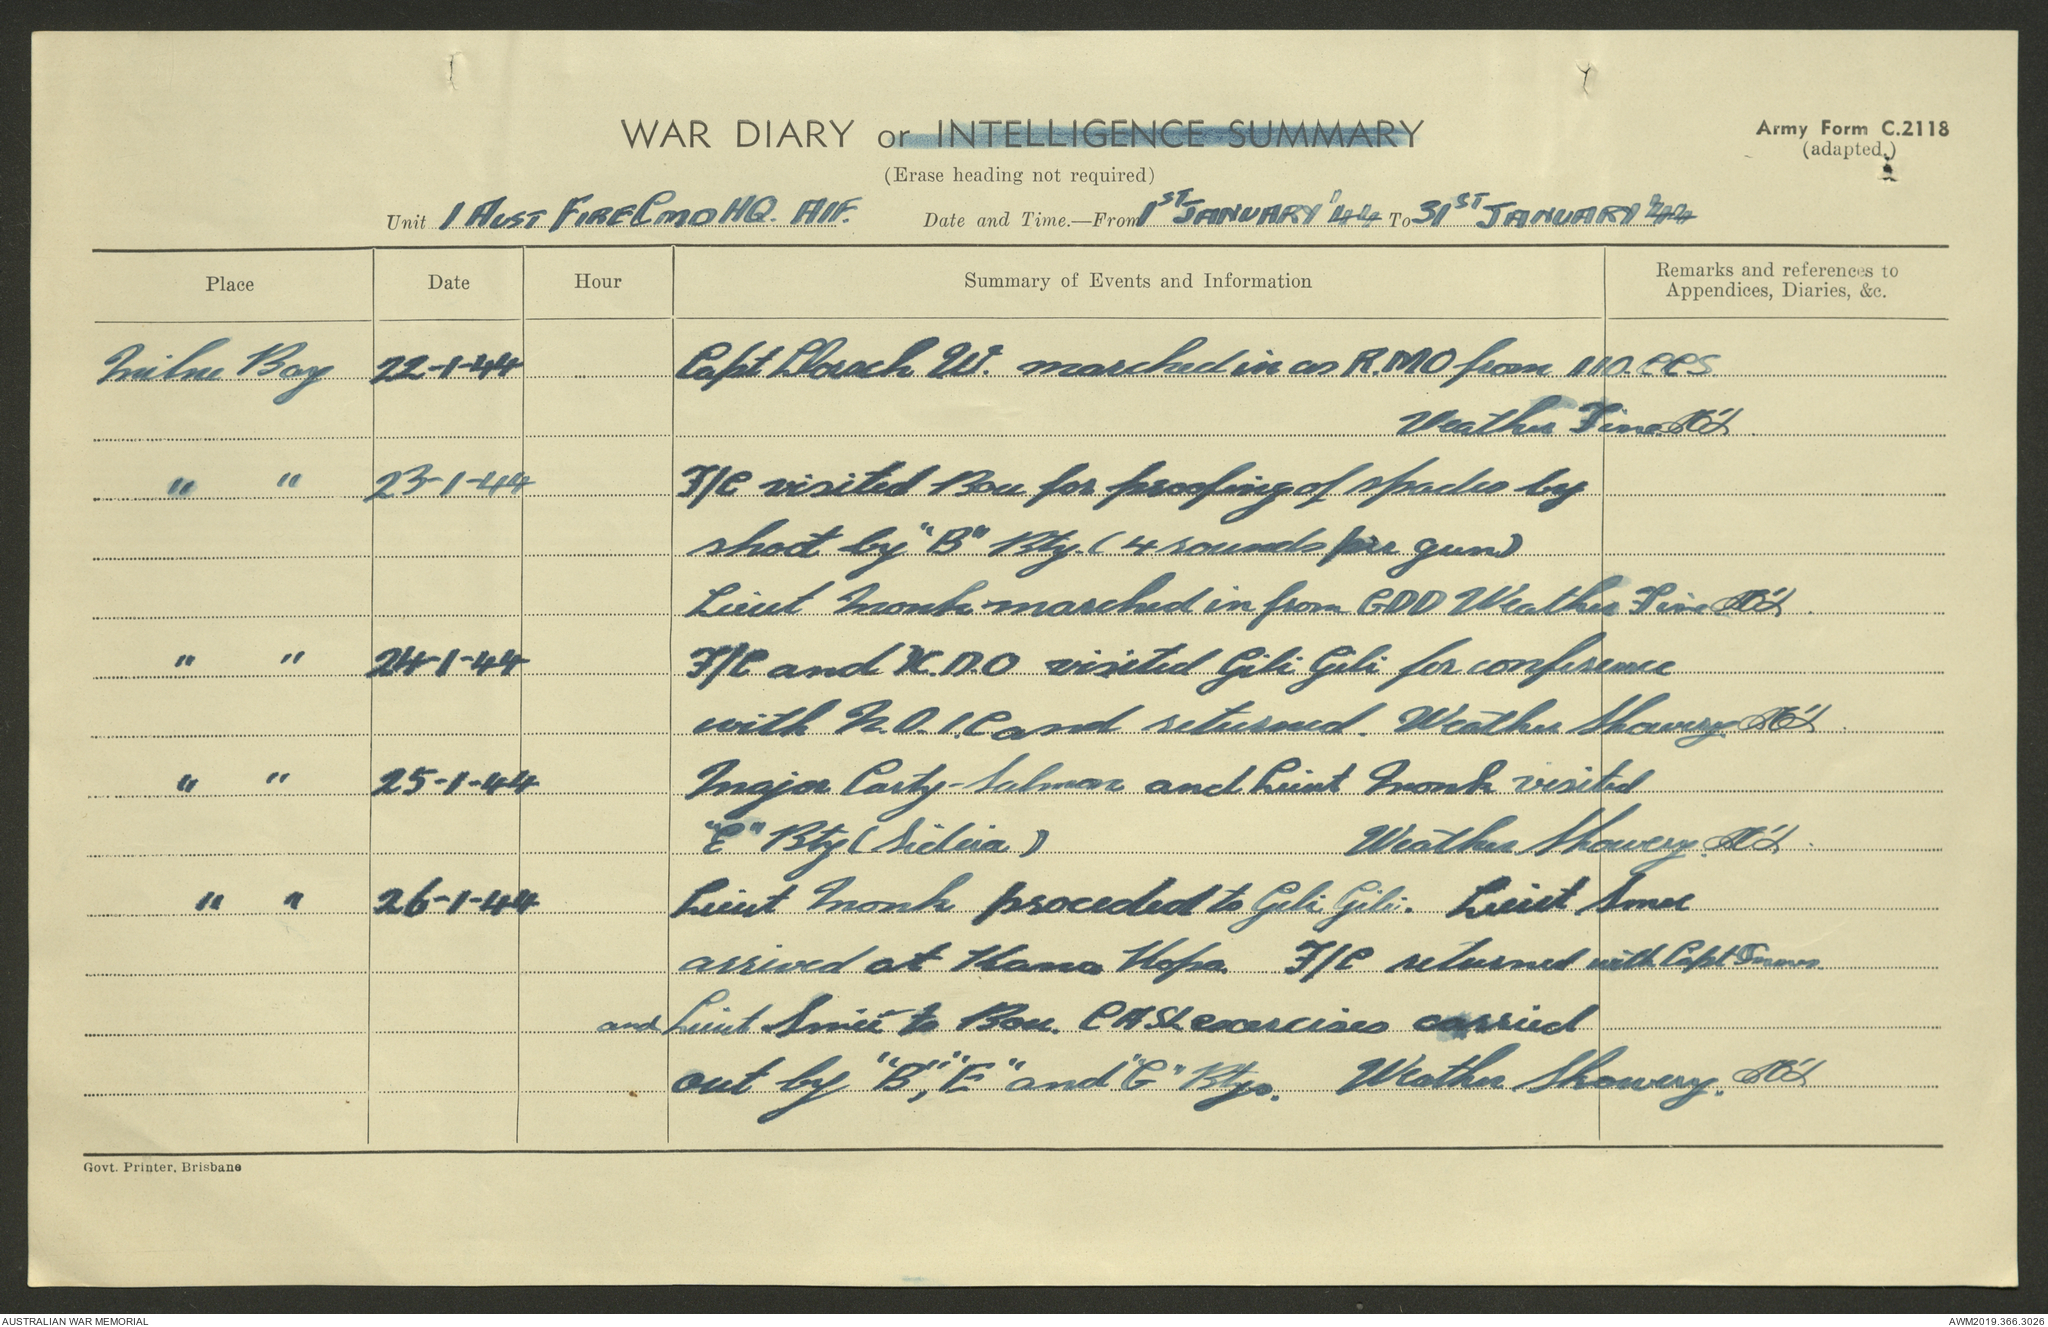 WAR DIARY or INTELLIGENCE SUMMARY
(Erase heading not required)
Army Form C.2118
(adapted.)
Unit 1 AUST FIRE CMD HQ. AIF. Date and Time.—From 1ST JANUARY '44 To 31ST JANUARY '44
Place Date Hour Summary of Events and Information Remarks and references to
Appendices, Diaries, &c.
Milne Bay 22-1-44 Capt W. marched in as R.M.O from 110. CCS.
Weather Fine
" " 23-1-44 F/C visited Bou for proofing of spades by
shoot by "B" Bty. (4 rounds per gun)
Lieut Monk marched in from GDD Weather Fine
" " 24-1-44 F/C and visited Gili Gili for conference
with N.O.I.C and returned. Weather Showery
" " 25-1-44 Major Carty-Salmon and Lieut Monk visited
"E" Bty (Sideia) Weather Showery.
" " 26-1-44 Lieut Monk proceded to Gili Gili. Lieut
arrived at Kana Kopa. F/C returned with Capt
and Lieut to Bou. CASL exercises carried
out by "B", "E" and "G" Btys. Weather Showery.
Govt. Printer, Brisbane
AUSTRALIAN WAR MEMORIAL
AWM2019.366.3026